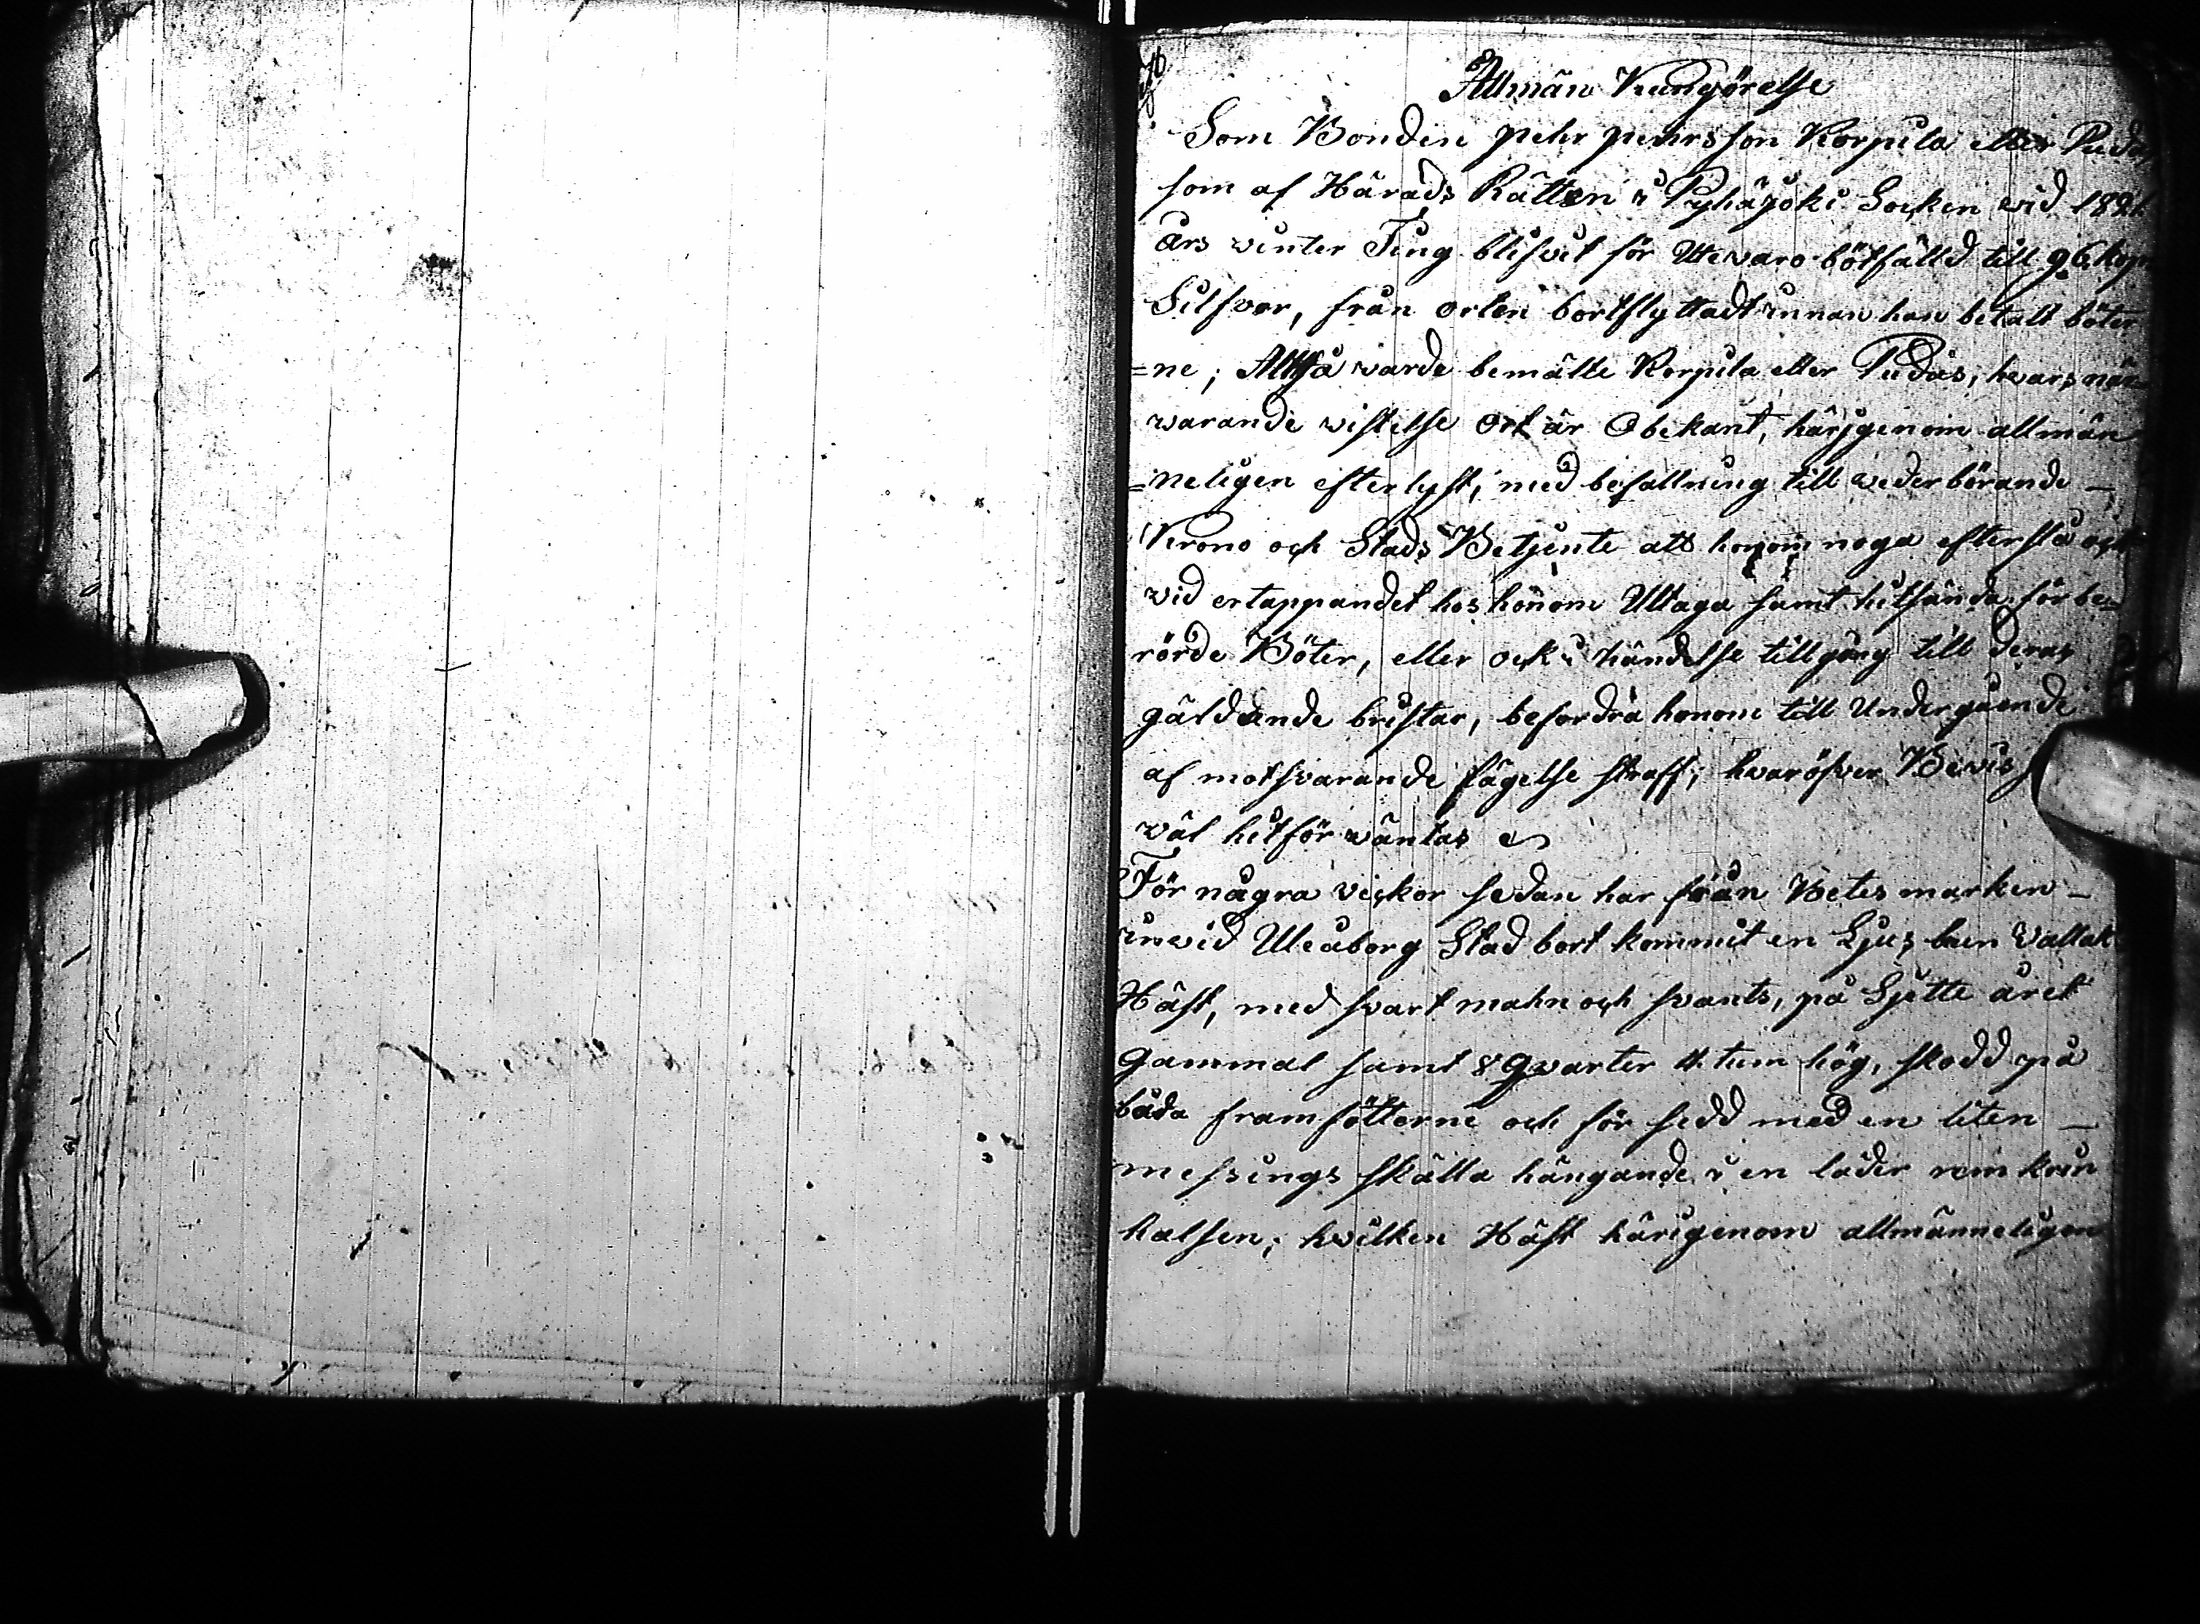 Allmän Kungörelse
Som Bonden pehr pehrsson Korpila eller Pudas
som af Härads Rätten i Pyhäjoki Socken wid 1821
års winter Ting blifvit för Utewaro bötfälld till 96 kop
Silfver, från orten bortflyttadt innan han betalt böter
=ne; Alltså warde bemälte Korpila eller Pudas, hvars när
warande wistelse Ort är Obekant, härigenom allmän
=neligen efterlyst, med befallning till wederbörande —
Krono och Stads Betjente att honom noga efterslå och
wid ertappandet hos honom Uttaga samt hitsända förbe=
rörde Böter, eller ock i händelse tillgång till deras
gäldande bristar, befordra honom till Undergående
af motsvarande fägelse straff; hvaröfver Bewis
wäl hitförwäntas
För några veckor sedan har från Betesmarken —
inwid Uleåborg Stad bort kommit en Ljus brun Vallak
Häst, med svart mahn och svants, på Sjette året
Gammal samt 8 Qvarter 4 tum hög, skodd på
båda framfötterne och försedd med en liten —
messings skälla hängande i en läder rem kring
halsen; hvilken Häst härigenom allmänneligen